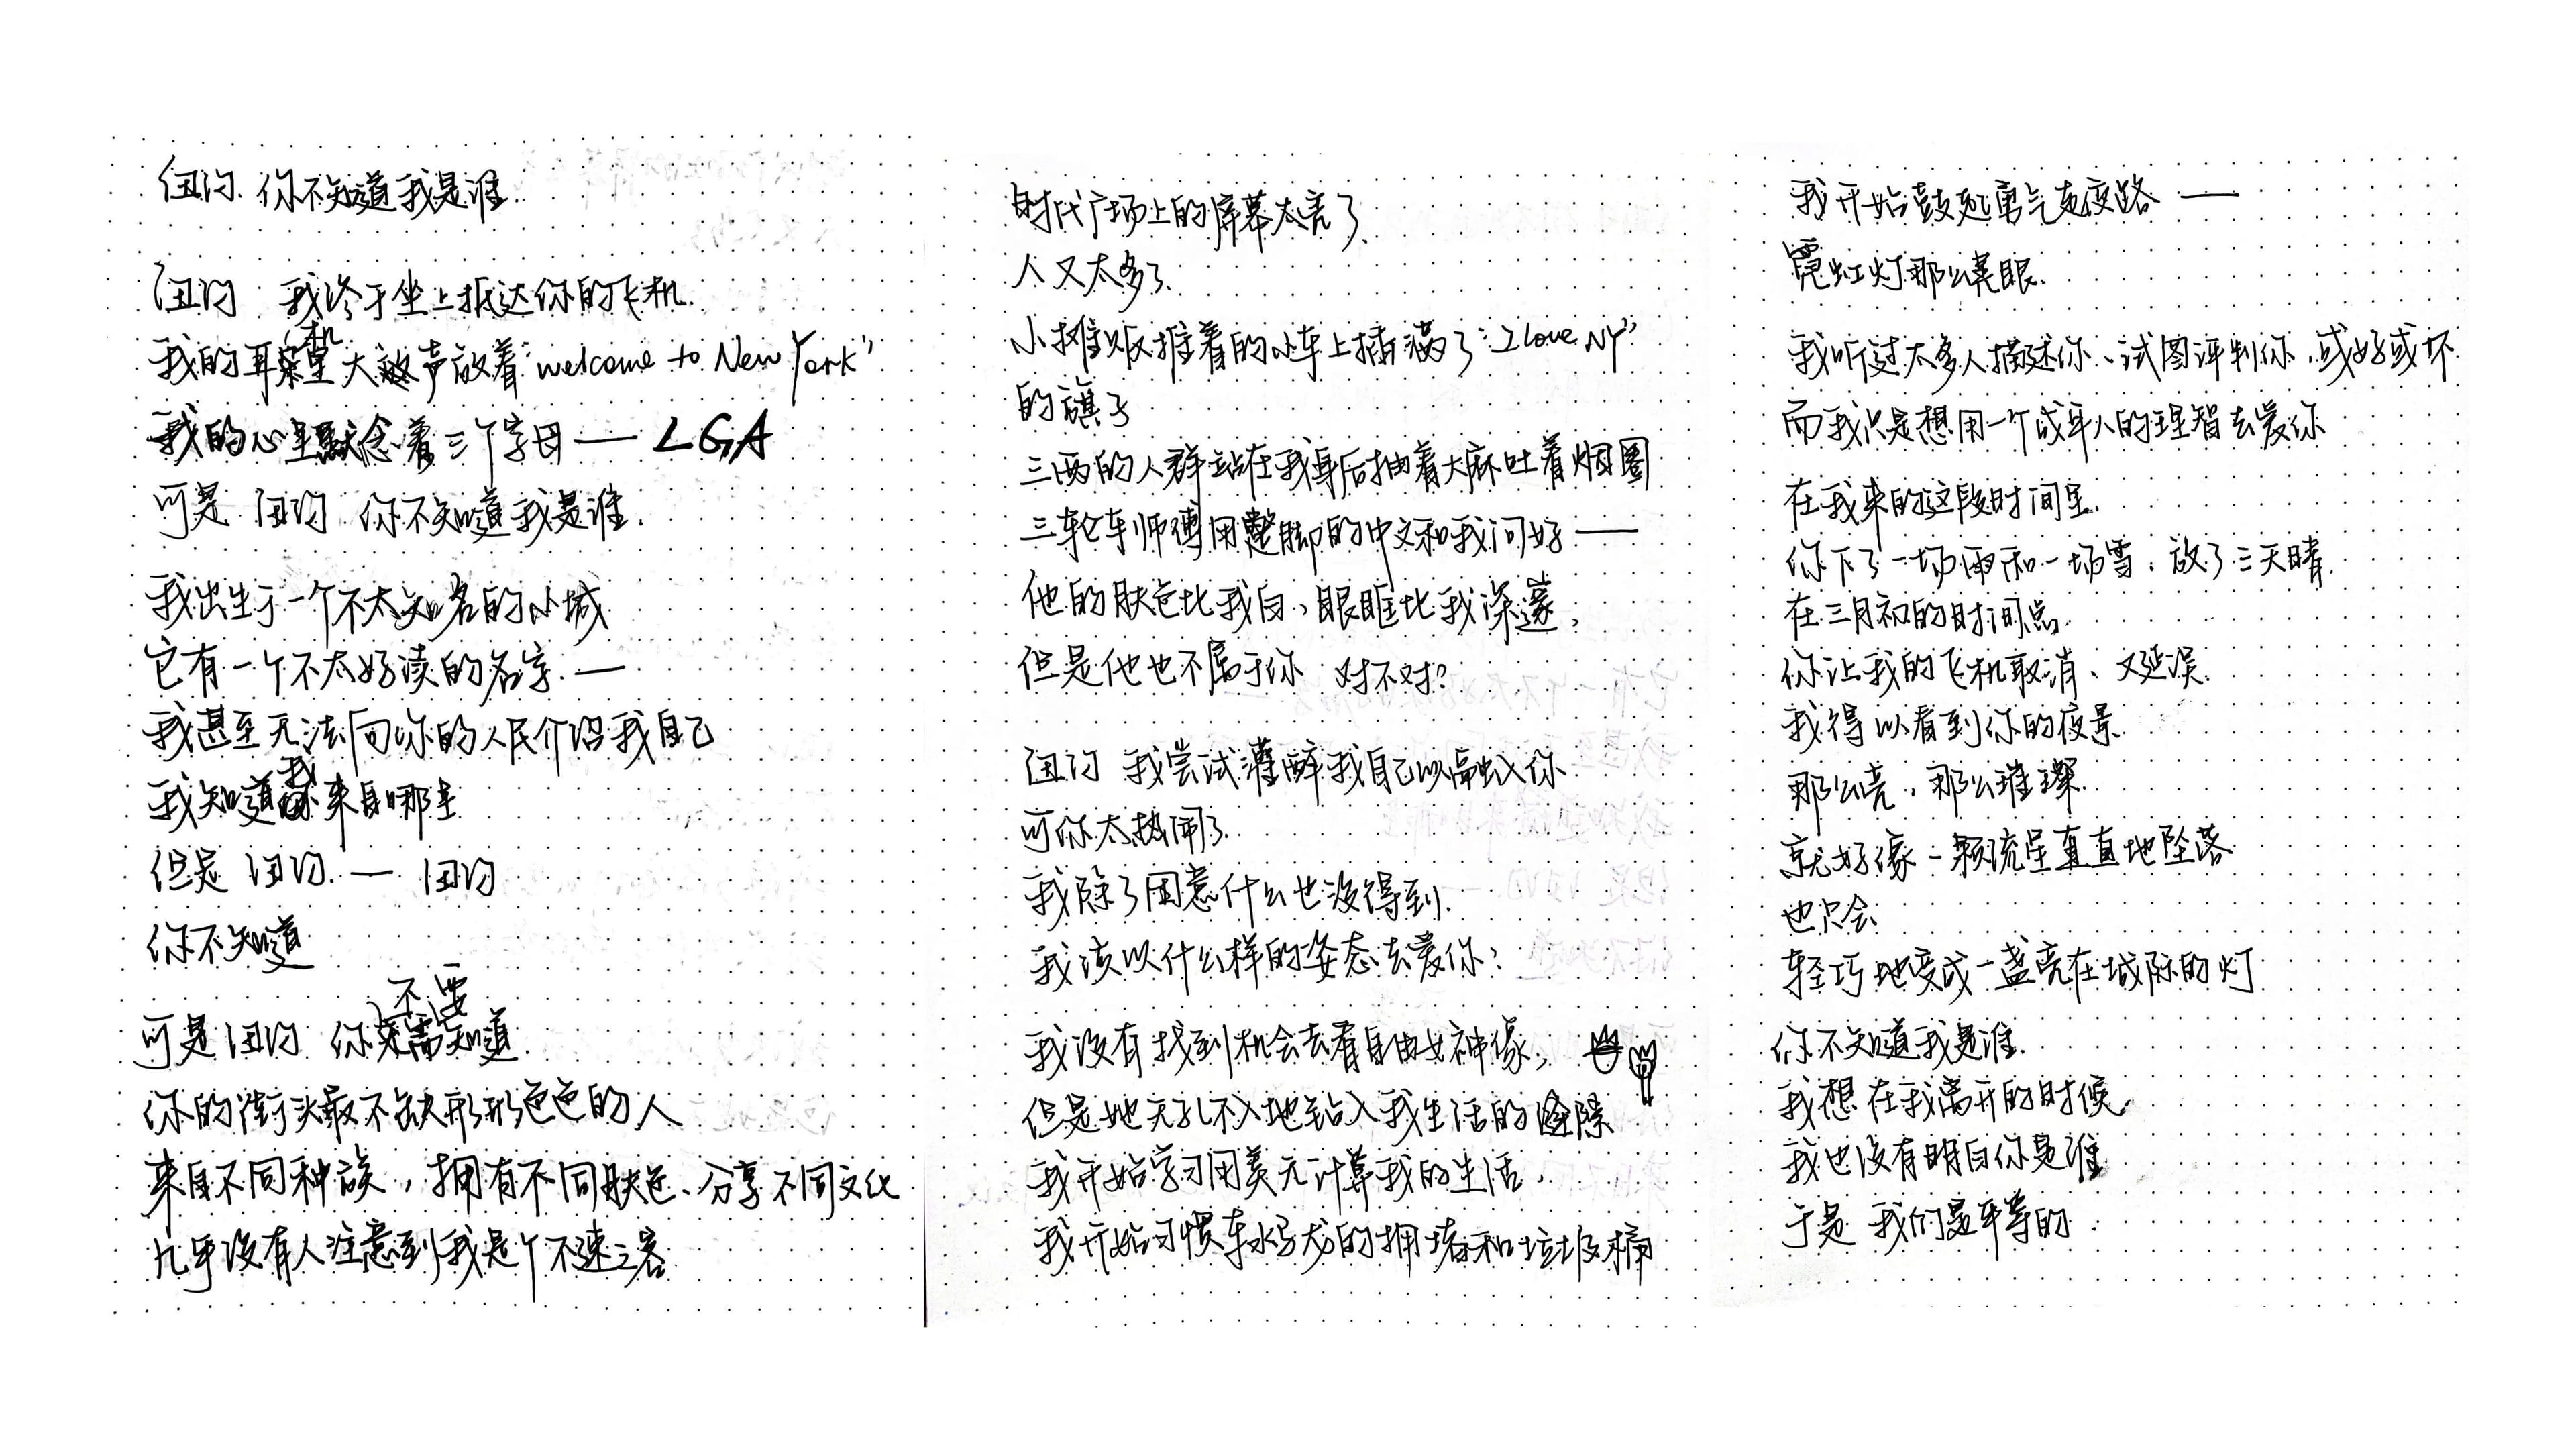 纽约 你不知道我是谁
纽约 我终于坐上抵达你的飞机
我的耳机里大声放着“welcome to New York”
我的心里默念着三个字母——LGA
可是 纽约 你不知道我是谁.
我出生于一个不太知名的小城
它有一个不太好读的名字——
我甚至无法向你的人民介绍我自己
我知道我来自哪里
但是 纽约——纽约
你不知道
可是纽约 你不需要知道
你的街头最不缺形形色色的人
来自不同种族，拥有不同肤色、分享不同文化
几乎没有人注意到我是个不速之客
时代广场上的屏幕太亮了
人又太多了
小摊贩推着的小车上插满了“I love NY”
的旗子
三两的人群站在我身后抽着大麻吐着烟圈
三轮车师傅用蹩脚的中文和我问好——
他的肤色比我白，眼眶比我深邃，
但是他也不属于你 对不对?
纽约 我尝试灌醉我自己以融入你
可你太热闹了
我除了困意什么也没得到.
我该以什么样的姿态去爱你?
我没有找到机会去看自由女神像，
但是她无孔不入地钻入我生活的缝隙
我开始学习用美元计算我的生活，
我开始习惯车水马龙的拥堵和垃圾桶
我开始鼓起勇气走夜路——
霓虹灯那么晃眼.
我听过太多人描述你、试图评判你，或好或坏
而我只是想用一个成年人的理智去爱你
在我来的这段时间里.
你下了一场雨和一场雪，放了三天晴.
在三月初的时间点.
你让我的飞机取消、又延误.
我得以看到你的夜景.
那么亮，那么璀璨.
就好像一颗流星直直地坠落
也只会
轻巧地变成一盏亮在城际的灯
你不知道我是谁.
我想在我离开的时候
我也没有明白你是谁
于是 我们是平等的.